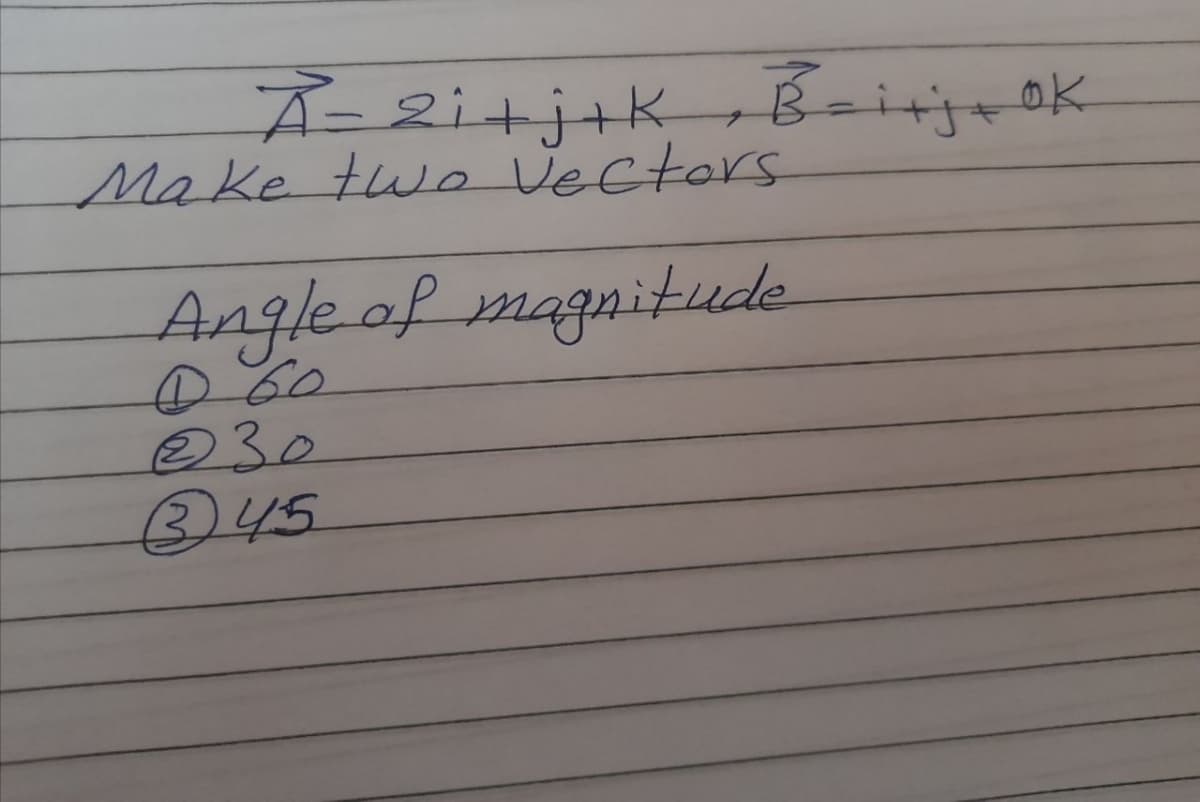 A⃗ = 2i + j + K , B⃗ = i + j + 0K
Make two Vectors
Angle of magnitude
① 60
② 30
③ 45